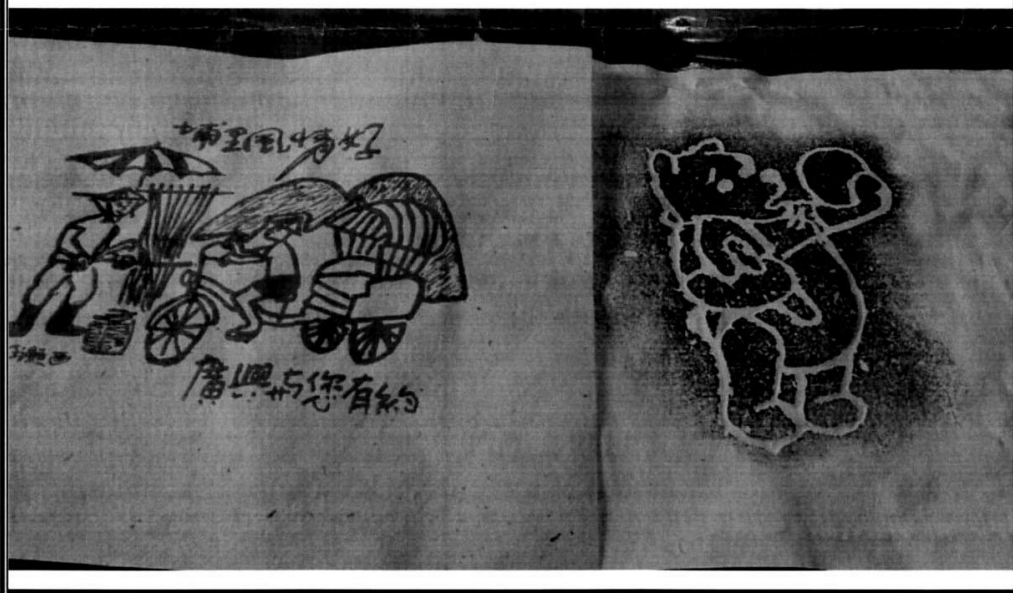 埔里風情好
廣興与您有約